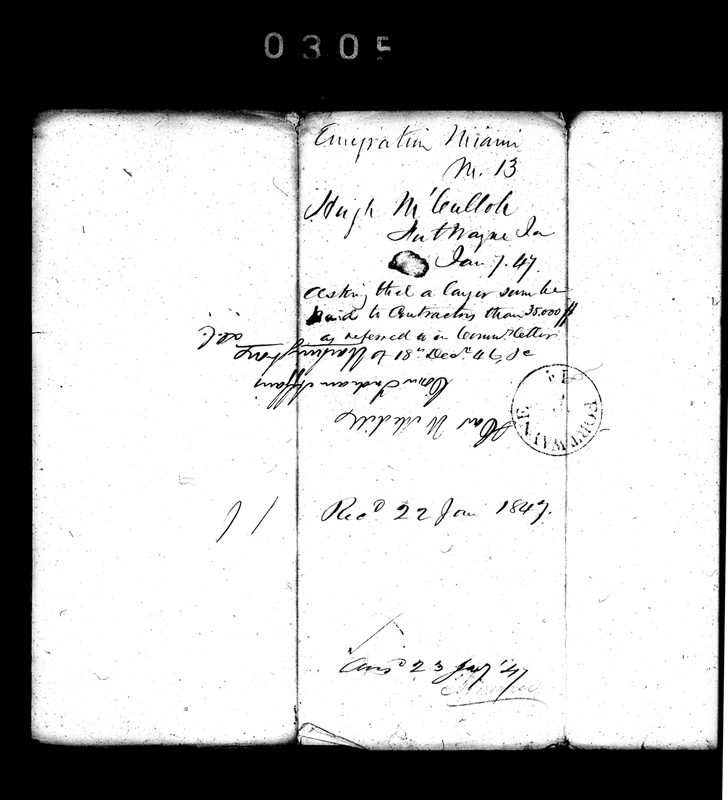 0305
Emigration Miami
M. 13
Hugh McCulloh
Fort Wayne Ia
Jan 7. 47.
asking that a larger sum be
paid to Contractors than 30.000 $
as referred to in Comm.rs letter
to 18th Decr 46, &c
Hon W Medill
Com Indian Affairs
Washington
FORT WAYNE
Recd 22 Jan 1847.
Ansd 23 Jany '47